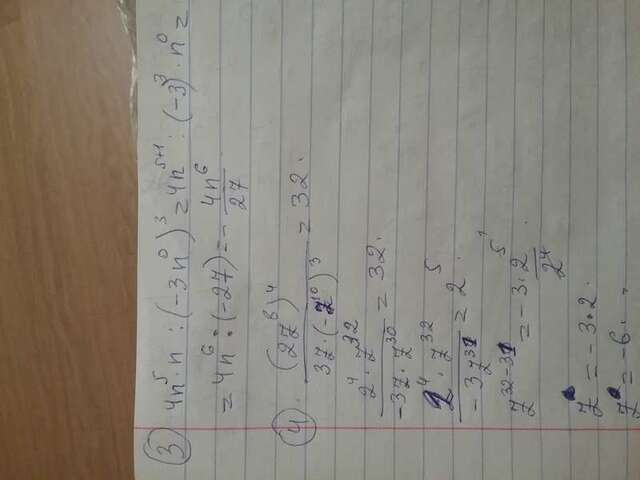 ③ 4n⁵·n : (-3n⁰)³ = 4n⁵⁺¹ : (-3)³ · n⁰ =
= 4n⁶ : (-27) = - 4n⁶/27
④. (2z⁸)⁴ / 3z·(-z¹⁰)³ = 32.
2⁴·z³² / -3z·z³⁰ = 32.
2⁴·z³² / -3z³¹ = 2⁵.
z³²⁻³¹ = -3·2⁵/2⁴.
z = -3·2.
z = -6.